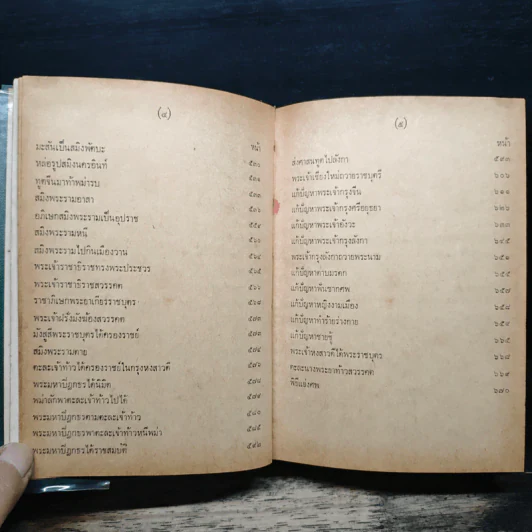 (๔)
หน้า
มะสันเป็นสมิงพัตบะ
หล่อรูปสมิงนครอินท์ ๕๓๐
ทูตจีนมาท้าพม่ารบ ๕๓๑
สมิงพระรามอาสา ๕๓๓
อภิเษกสมิงพระรามเป็นอุปราช ๕๔๖
สมิงพระรามหนี ๕๕๙
สมิงพระรามไปกินเมืองวาน ๕๖๐
พระเจ้าราชาธิราชทรงพระประชวร ๕๖๕
พระเจ้าราชาธิราชสวรรคต ๕๖๖
ราชาภิเษกพระยาเกียรราชบุตร ๕๖๘
พระเจ้าฝรั่งมังฆ้องสวรรคต ๕๗๒
มังสูลีพระราชบุตรได้ครองราชย์ ๕๗๓
สมิงพระรามตาย ๕๗๔
ตะละเจ้าท้าวได้ครองราชย์ในกรุงหงสาวดี ๕๗๖
พระมหาปิฎกธรได้นิมิต ๕๗๘
พม่าลักพาตะละเจ้าท้าวไปได้ ๕๗๙
พระมหาปิฎกธรตามตะละเจ้าท้าว ๕๘๒
พระมหาปิฎกธรพาตะละเจ้าท้าวหนีพม่า ๕๘๕
พระมหาปิฎกธรได้ราชสมบัติ ๕๙๒
(๕)
หน้า
ส่งศาสนทูตไปลังกา ๕๙๓
พระเจ้าเชียงใหม่ถวายราชบุตรี ๖๐๖
แก้ปัญหาพระเจ้ากรุงจีน ๖๑๑
แก้ปัญหาพระเจ้ากรุงศรีอยุธยา ๖๒๖
แก้ปัญหาพระเจ้าอังวะ ๖๓๖
แก้ปัญหาพระเจ้ากรุงลังกา ๖๔๕
พระเจ้ากรุงลังกาถวายพระนาม ๖๕๑
แก้ปัญหาดาบมรดก ๖๕๕
แก้ปัญหาพินชากศพ ๖๕๗
แก้ปัญหาหญิงงามเมือง ๖๕๘
แก้ปัญหาทำร้ายร่างกาย ๖๕๙
แก้ปัญหาชายชู้ ๖๖๕
พระเจ้าหงสาวดีได้พระราชบุตร ๖๖๘
ตะละนางพระยาท้าวสวรรคต ๖๖๙
พิธีแย่งศพ ๖๗๐